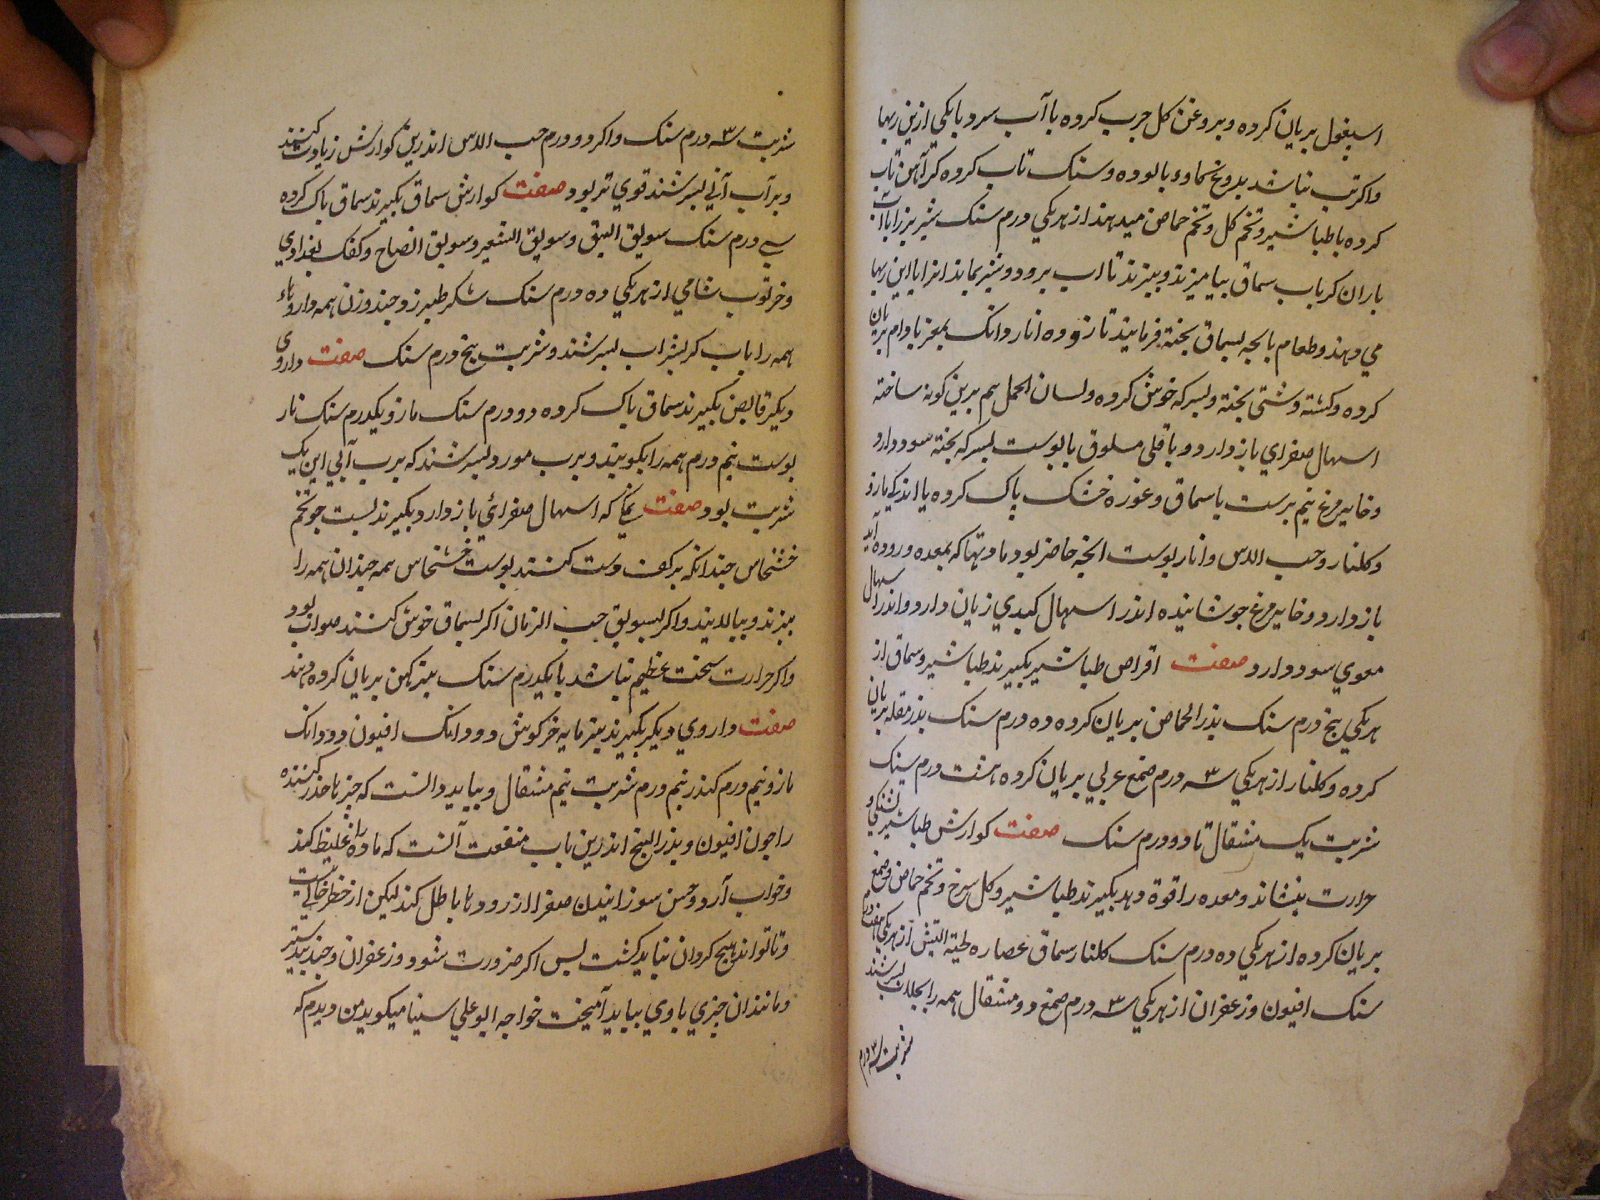 اسبغول بریان کرده و بروغن کل چرب کرده با آب سرد با یکی ازین ربها
واکر تب نباشد بدوغ کاو بالوده و سنک تاب کرده کر آهن تاب
کرده با طباشیر و تخم کل و تخم حماض میدهند از هر یکی درم سنک شیر بز را با آب
باران کر باب سماق بیامیزند و بپزند تا آب برود و شیر بماند انرا با این ربها
می دهند و طعام بابجه بسماق بخته فرمایند تازه و ده انار دانک بمغز بادام بریان
کرده و کشته و شتی بخته و بسرکه خوش کرده و لسان الحمل هم برین کونه ساخته
اسهال صفرای باز دارد و باقلی مسلوق با بوست بسرکه بخته سود دارد
و خایه مرغ نیم برست با سماق و غوره خشک باک کرده یا اندکی مازو
و کلنار و حب الاس و انار بوست انجه حاضر بود مادتها که بمعده و روده آید
باز دارد و خایه مرغ جوشانیده اندر اسهال کبدی زیان دارد و اندر اسهال
معوی سود دارد صفت اقراص طباشیر بکیرند طباشیر و سماق از
هر یکی بنج درم سنک بذر الحماض بریان کرده ده درم سنک بذر مقله بریان
کرده و کلنار از هر یکی سه درم صمغ عربی بریان کرده هشت درم سنک
شربت یک مثقال تا دو درم سنک صفت کوارش طباشیر تشنکی و
حرارت بنشاند و معده را قوة دهد بکیرند طباشیر و کل سرخ و تخم حماض و صمغ
بریان کرده از هر یکی ده درم سنک کلنار سماق عصاره لحیة التیس از هر یکی هفت درم
سنک افیون و زعفران از هر یکی سه درم صمغ دو مثقال همه را بجلاب بسرشند
شربت سه درم
شربت سه درم سنک واکر دو درم حب الاس اندرین کوارش زیادت کنند
و برآب آبی بسرشند قوی تر بود صفت کوارش سماق بکیرند سماق باک کرده
سی درم سنک سویق النبق و سویق الشعیر و سویق التفاح و کعک بغدادی
و خرنوب شامی از هر یکی ده درم سنک شکر طبرزد چند وزن همه داروهاء
همه را باب کر بشراب بسرشند و شربت بنج درم سنک صفت داروی
دیکر قابض بکیرند سماق باک کرده دو درم سنک مازو یکدرم سنک نار
بوست نیم درم همه را بکوبند و برب مورد بسرشند که برب آبی این یک
شربت بود صفت که اسهال صفرائی باز دارد بکیرند بست جو تخم
خشخاش چندانکه برکف دست کنند بوست خشخاش سه چندان همه را
ببزند و ببالایند واکر بسویق حب الرمان اکر بسماق خوش کنند صواب بود
واکر حرارت سخت عظیم نباشد با یکدرم سنک بنیر کهن بریان کرده دهند
صفت داروی دیکر بکیرند بنیر مایه خرکوش دو دانک افیون دو دانک
مازو نیم درم کندر نیم درم شربت نیم مثقال و بباید دانست که چیزها خدر کننده
را چون افیون و بذر البنج اندرین باب منفعت آنست که ماده را غلیظ کند
و خواب آرد و حس سوزانیدن صفرا از رودها باطل کند لیکن از خطر خالی نیست
و تا تواند هیچ کرد ان نباید کشت بس اکر ضرورت شود و زعفران و جندبیدستر
و مانند آن چیزی با وی بباید آمیخت خواجه ابوعلی سینا میکوید من دیدم که